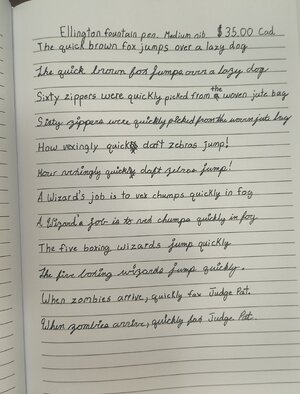 Ellington fountain pen. Medium nib $35.00 Cad.
The quick brown fox jumps over a lazy dog
The quick brown fox jumps over a lazy dog
Sixty zippers were quickly picked from the woven jute bag
Sixty zippers were quickly picked from the woven jute bag
How vexingly quick daft zebras jump!
How vexingly quickly daft zebras jump!
A Wizard's job is to vex chumps quickly in fog
A Wizard's job is to vex chumps quickly in fog
The five boxing wizards jump quickly
The five boxing wizards jump quickly.
When zombies arrive, quickly fax Judge Pat.
When zombies arrive, quickly fax Judge Pat.